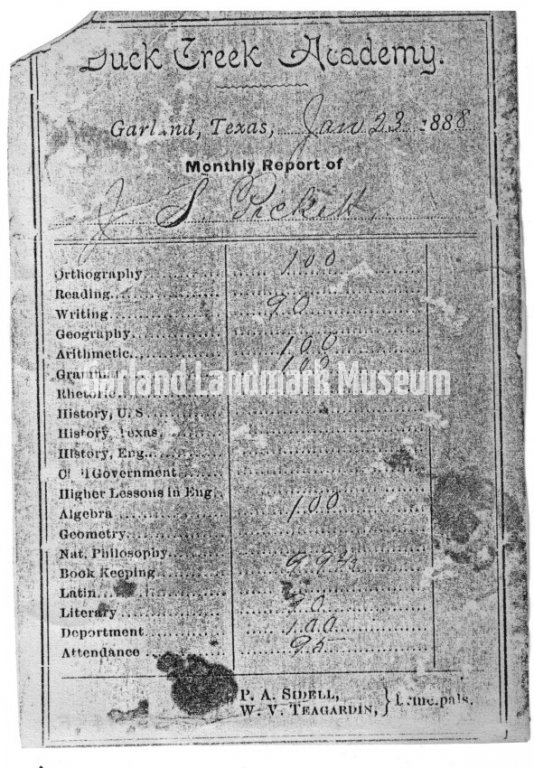 Duck Creek Academy.
Garland, Texas, Jan 23 1888
Monthly Report of
J S Pickett
Orthography 100
Reading
Writing 90
Geography
Arithmetic 100
Grammar 100
Garland Landmark Museum
Rhetoric
History, U. S
History, Texas
History, Eng.
Civil Government
Higher Lessons in Eng.
Algebra 100
Geometry
Nat. Philosophy
Book Keeping 99½
Latin
Literary 90
Deportment 100
Attendance 95
P. A. Sidell,
W. V. Teagardin, } Principals.